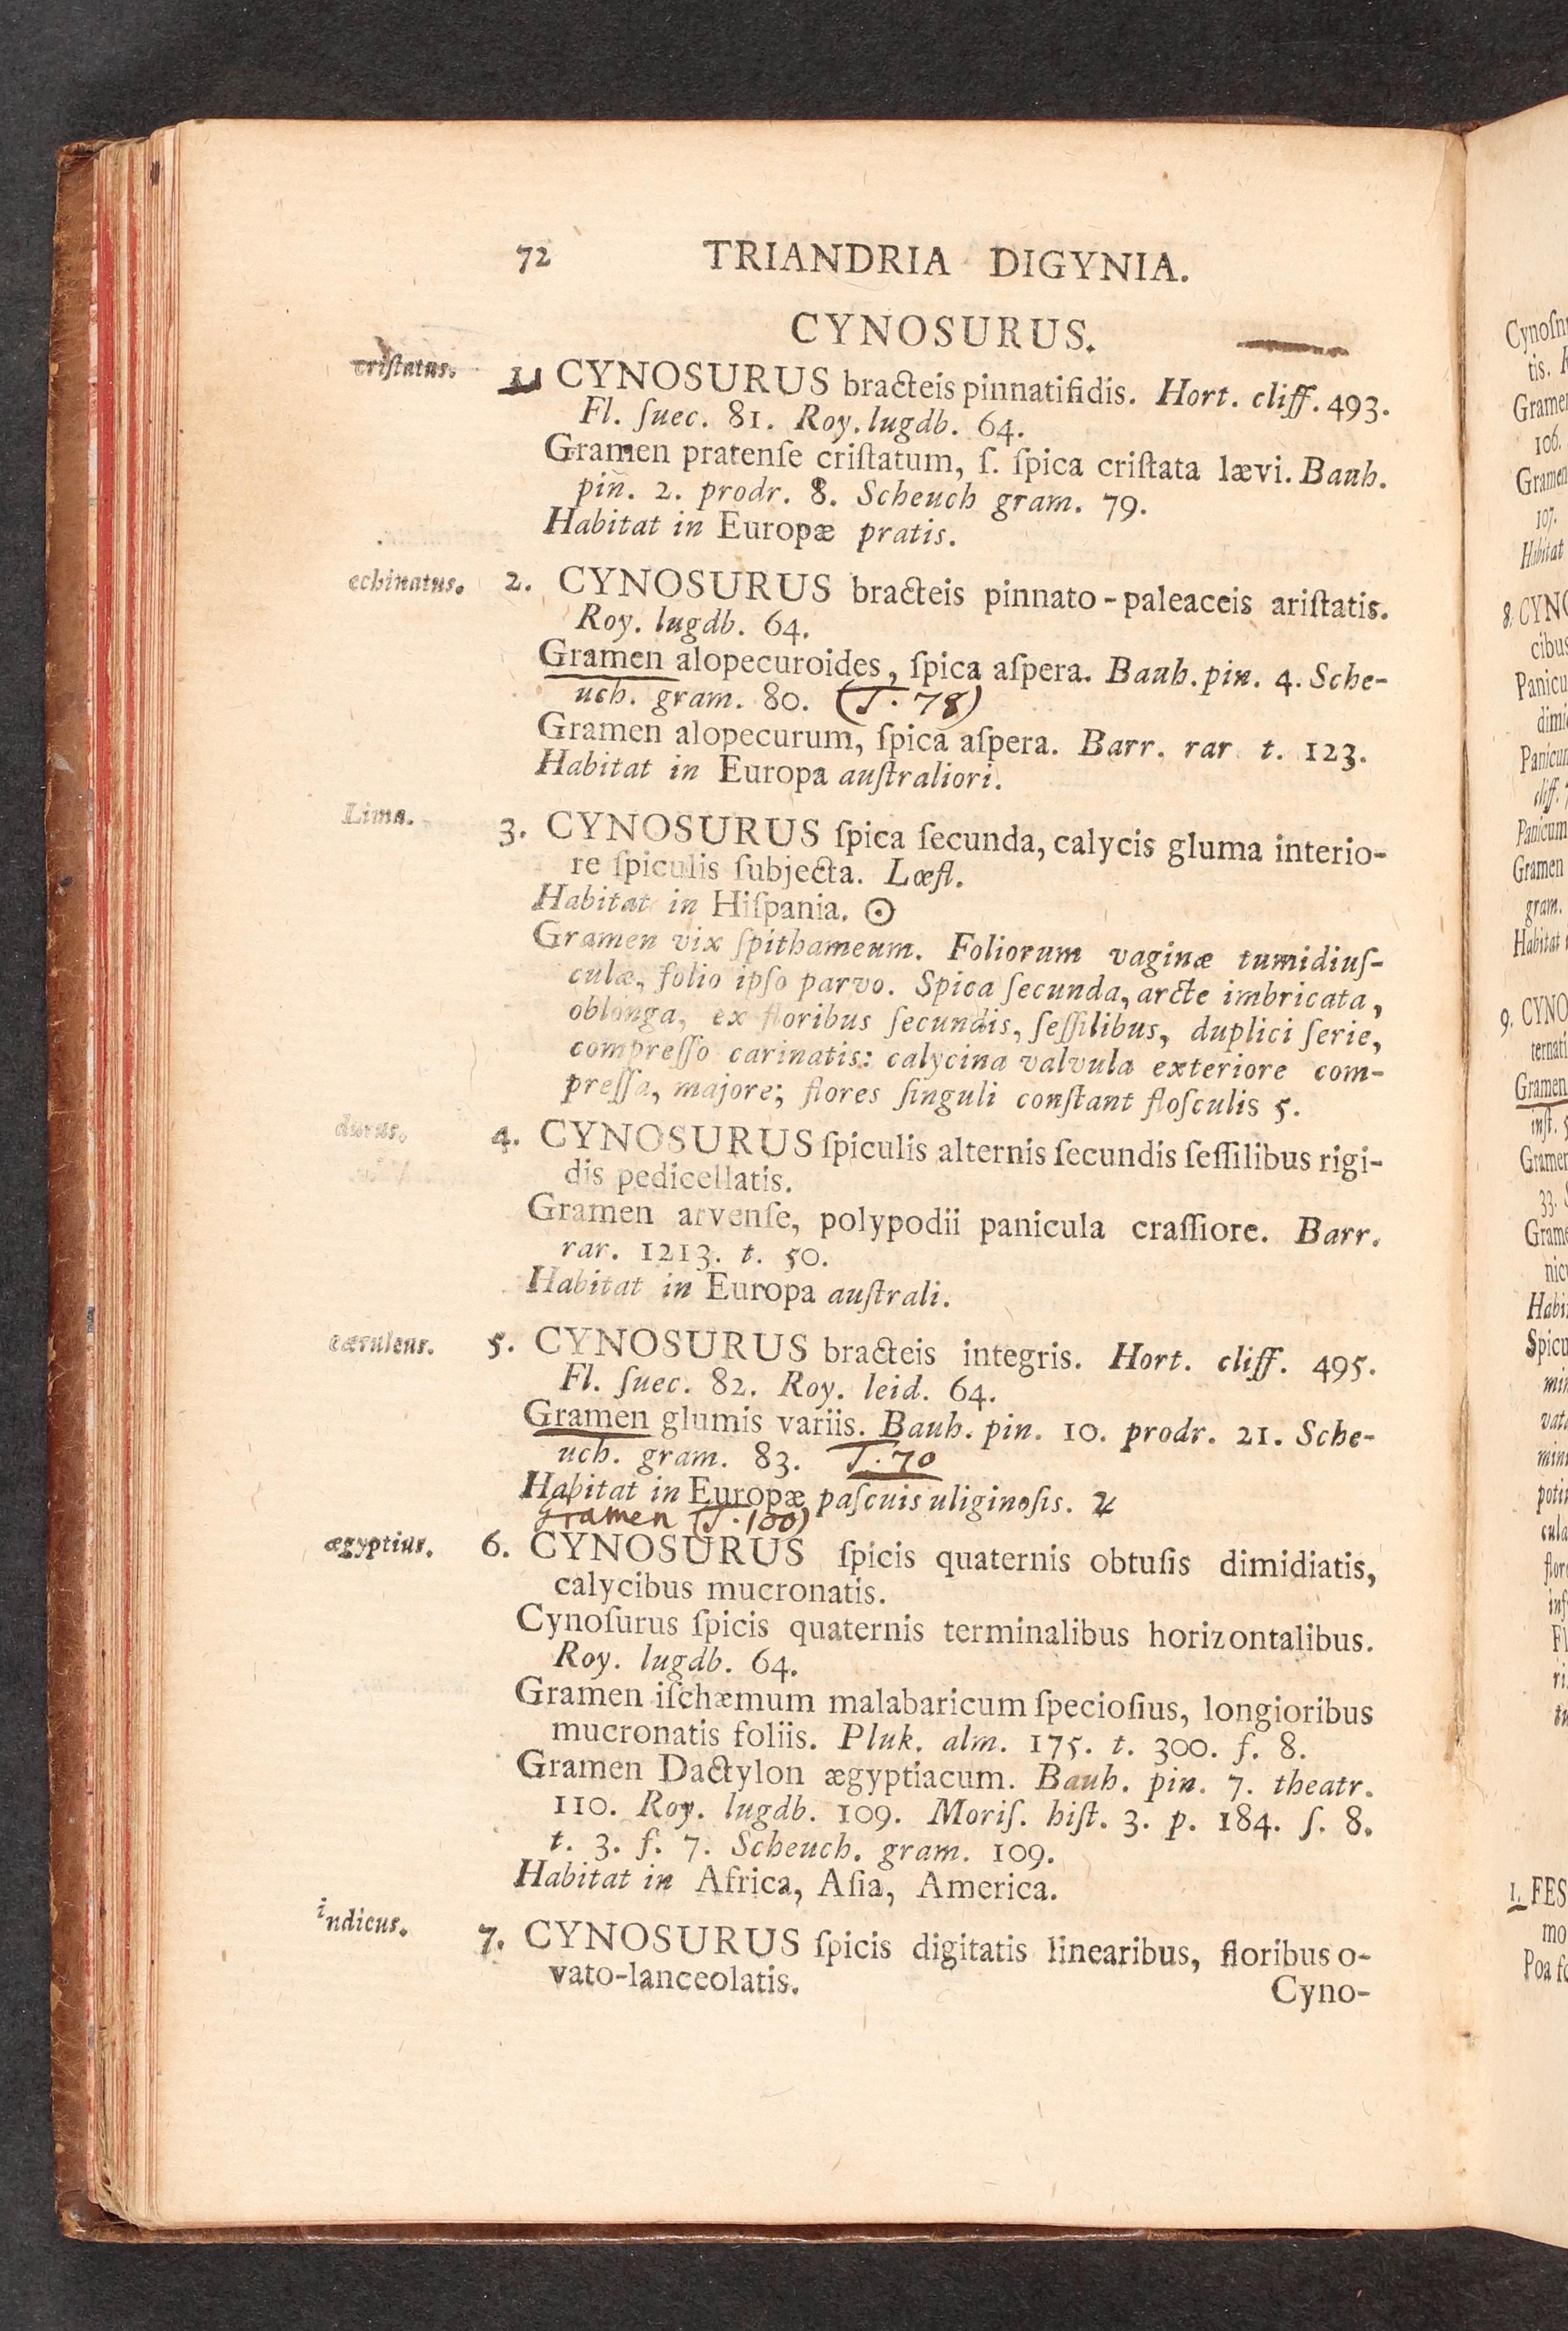 72 TRIANDRIA DIGYNIA.
CYNOSURUS.
criſtatus. 1. CYNOSURUS bracteis pinnatifidis. Hort. cliff. 493.
Fl. ſuec. 81. Roy. lugdb. 64.
Gramen pratenſe criſtatum, ſ. ſpica criſtata lævi. Bauh.
pin. 2. prodr. 8. Scheuch gram. 79.
Habitat in Europæ pratis.
echinatus. 2. CYNOSURUS bracteis pinnato-paleaceis ariſtatis.
Roy. lugdb. 64.
Gramen alopecuroides, ſpica aſpera. Bauh. pin. 4. Sche-
uch. gram. 80. (T. 78)
Gramen alopecurum, ſpica aſpera. Barr. rar t. 123.
Habitat in Europa auſtraliori.
Lima. 3. CYNOSURUS ſpica ſecunda, calycis gluma interio-
re ſpiculis ſubjecta. Lœfl.
Habitat in Hiſpania. ☉
Gramen vix ſpithameum. Foliorum vaginæ tumidiuſ-
culæ, folio ipſo parvo. Spica ſecunda, arcte imbricata,
oblonga, ex floribus ſecundis, ſeſſilibus, duplici ſerie,
compreſſo carinatis: calycina valvula exteriore com-
preſſa, majore; flores ſinguli conſtant floſculis 5.
durus. 4. CYNOSURUS ſpiculis alternis ſecundis ſeſſilibus rigi-
dis pedicellatis.
Gramen arvenſe, polypodii panicula craſſiore. Barr.
rar. 1213. t. 50.
Habitat in Europa auſtrali.
cæruleus. 5. CYNOSURUS bracteis integris. Hort. cliff. 495.
Fl. ſuec. 82. Roy. leid. 64.
Gramen glumis variis. Bauh. pin. 10. prodr. 21. Sche-
uch. gram. 83. T. 70
Habitat in Europæ paſcuis uliginoſis. ♃
Gramen (T. 100)
ægyptius. 6. CYNOSURUS ſpicis quaternis obtuſis dimidiatis,
calycibus mucronatis.
Cynoſurus ſpicis quaternis terminalibus horizontalibus.
Roy. lugdb. 64.
Gramen iſchæmum malabaricum ſpecioſius, longioribus
mucronatis foliis. Pluk. alm. 175. t. 300. f. 8.
Gramen Dactylon ægyptiacum. Bauh. pin. 7. theatr.
110. Roy. lugdb. 109. Moriſ. hiſt. 3. p. 184. ſ. 8.
t. 3. f. 7. Scheuch. gram. 109.
Habitat in Africa, Aſia, America.
indicus. 7. CYNOSURUS ſpicis digitatis linearibus, floribus o-
vato-lanceolatis.
Cyno-
Cynoſu
tis.
Gramen
106.
Gramen
107.
Habitat
8. CYNO
cibus
Panicu
dimi
Panicum
cliff. 7
Panicum
Gramen
gram.
Habitat
9. CYNO
ternati
Gramen
inſt. 5
Gramen
33.
Grame
nicu
Habi
Spicu
min
vat
mini
poti
cula
flor
inf
Fl
ri
1. FES
mo
Poa fo